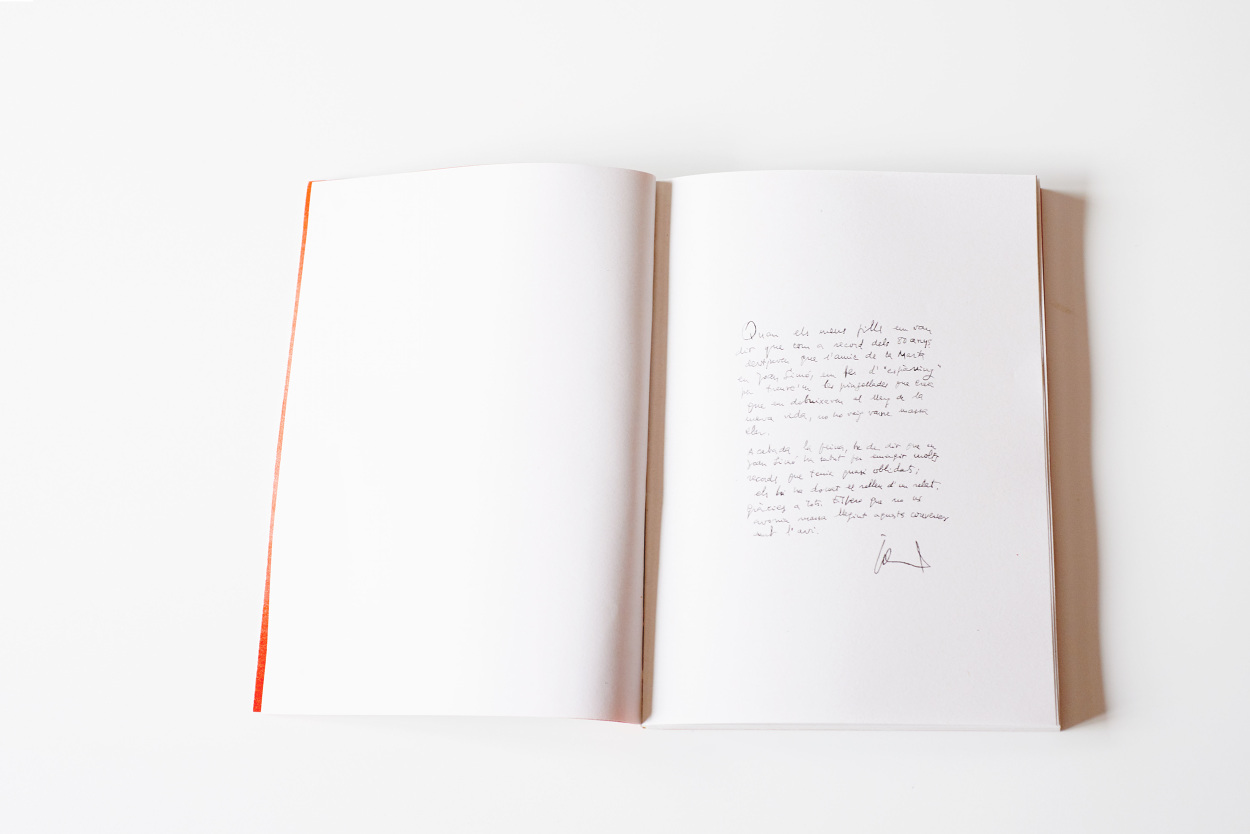 Quan els meus fills em van
dir que com a record dels 80 anys
que l'amic de la Marta
en Joan Simó, em fes d'"espàrring"
per treure'm les pinzellades que
que em al llarg de la
meva vida, no ho veig varie massa
clar.
Acabada la feina, he de dir que en
Joan Simó ha sabut molts
records que tenia quasi oblidats;
els hi ha donat el relleu d'un relat.
Gràcies a tots. Espero que no us
massa llegint aquestes converses
amb l'avi.